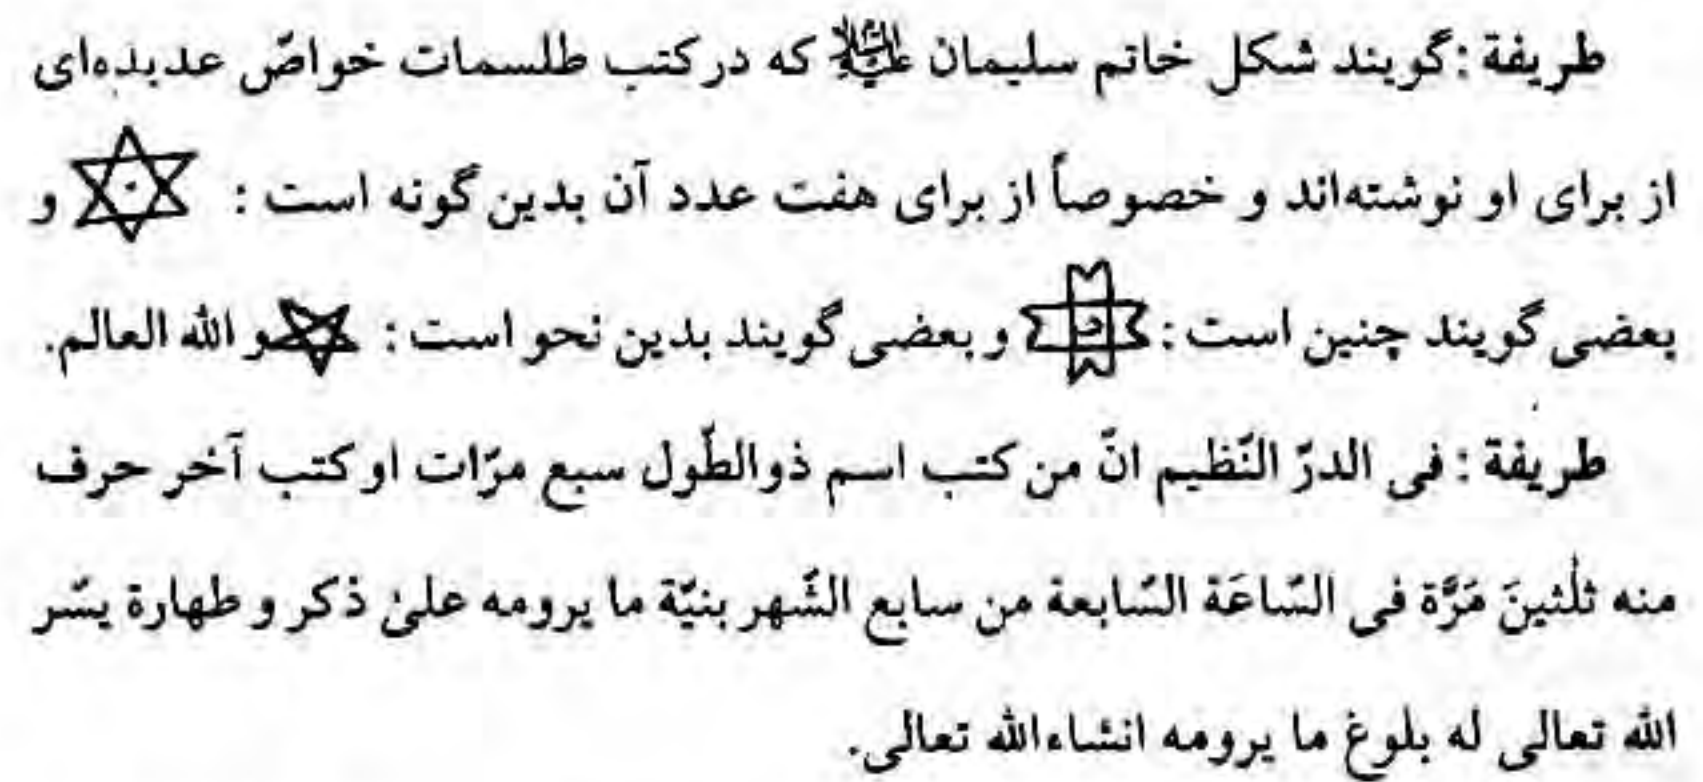 طریفة : گویند شکل خاتم سلیمان علیه‌السلام که در کتب طلسمات خواصّ عدیده‌ای
از برای او نوشته‌اند و خصوصاً از برای هفت عدد آن بدین گونه است : و
بعضی گویند چنین است : و بعضی گویند بدین نحو است : و الله العالم.
طریفة : فی الدرّ النّظیم انّ من کتب اسم ذوالطّول سبع مرّات او کتب آخر حرف
منه ثلٰثینَ مَرَّة فی السّاعَة السّابعة من سابع الشّهر بنیّة ما یرومه علیٰ ذکر و طهارة یسّر
الله تعالی له بلوغ ما یرومه انشاءالله تعالی.